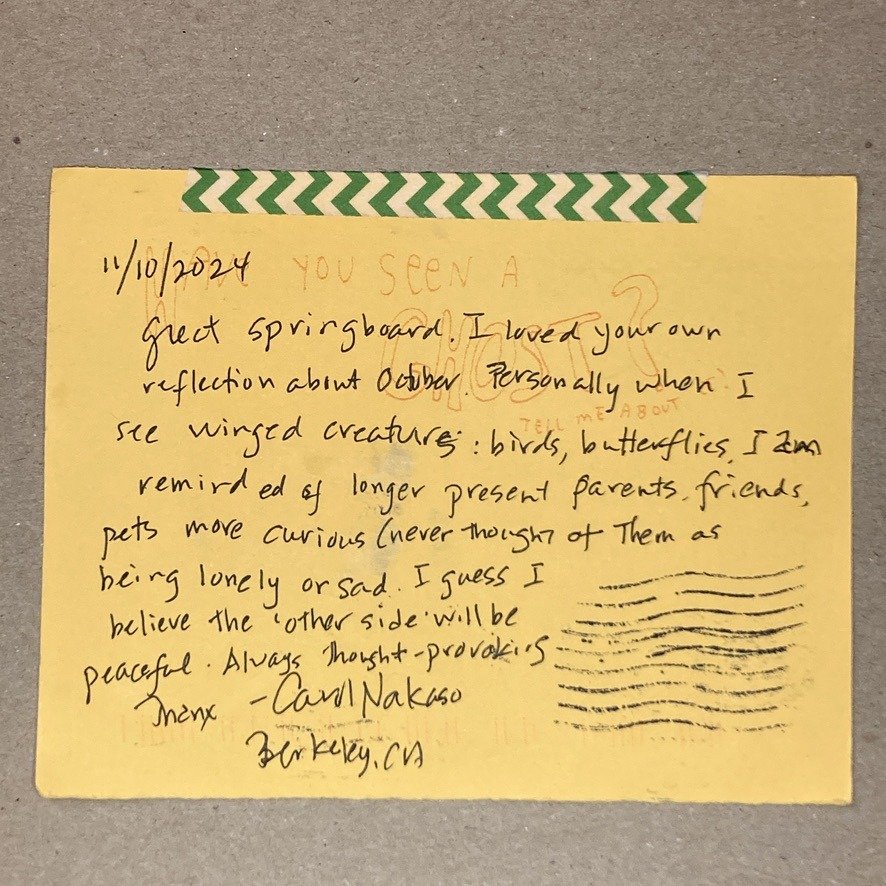 HAVE YOU SEEN A
GHOST?
TELL ME ABOUT
11/10/2024
Great springboard. I loved your own
reflection about October. Personally when I
see winged creatures: birds, butterflies, I am
reminded of longer present parents, friends,
pets more curious (never thought of them as
being lonely or sad. I guess I
believe the 'other side' will be
peaceful. Always thought-provoking
Thanx - Carol Nakaso
Berkeley, CA